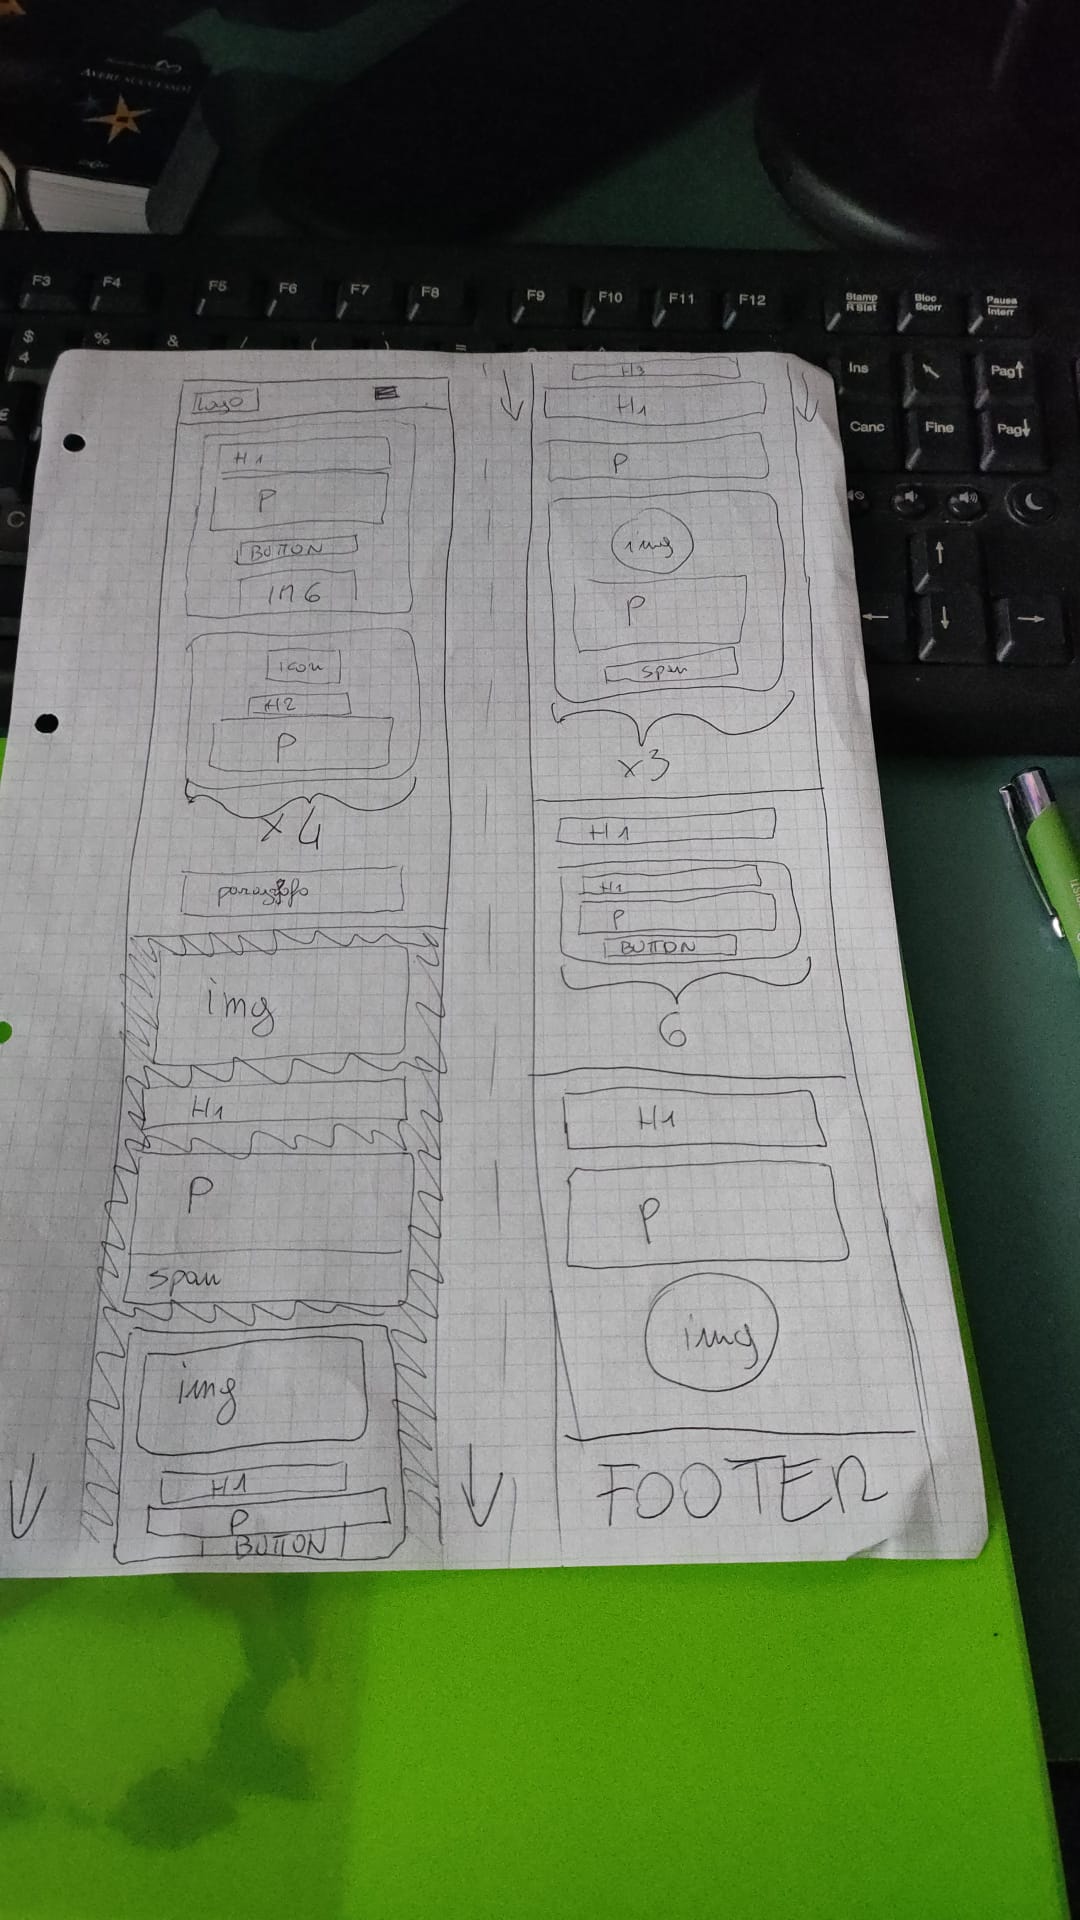 AVERE SUCCESSO!
F3
F4
F5
F6
F7
F8
F9
F10
F11
F12
Stamp
R Sist
Bloc
Scorr
Pausa
Interr
$
4
%
&
/
(
)
=
€
C
Ins
Pag↑
Canc
Fine
Pag↓
Logo
H1
P
BUTTON
IMG
icon
H2
P
x 4
paragrafo
img
H1
P
span
img
H1
P
BUTTON
H3
H1
P
img
P
span
x3
H1
H1
P
BUTTON
6
H1
P
img
FOOTER